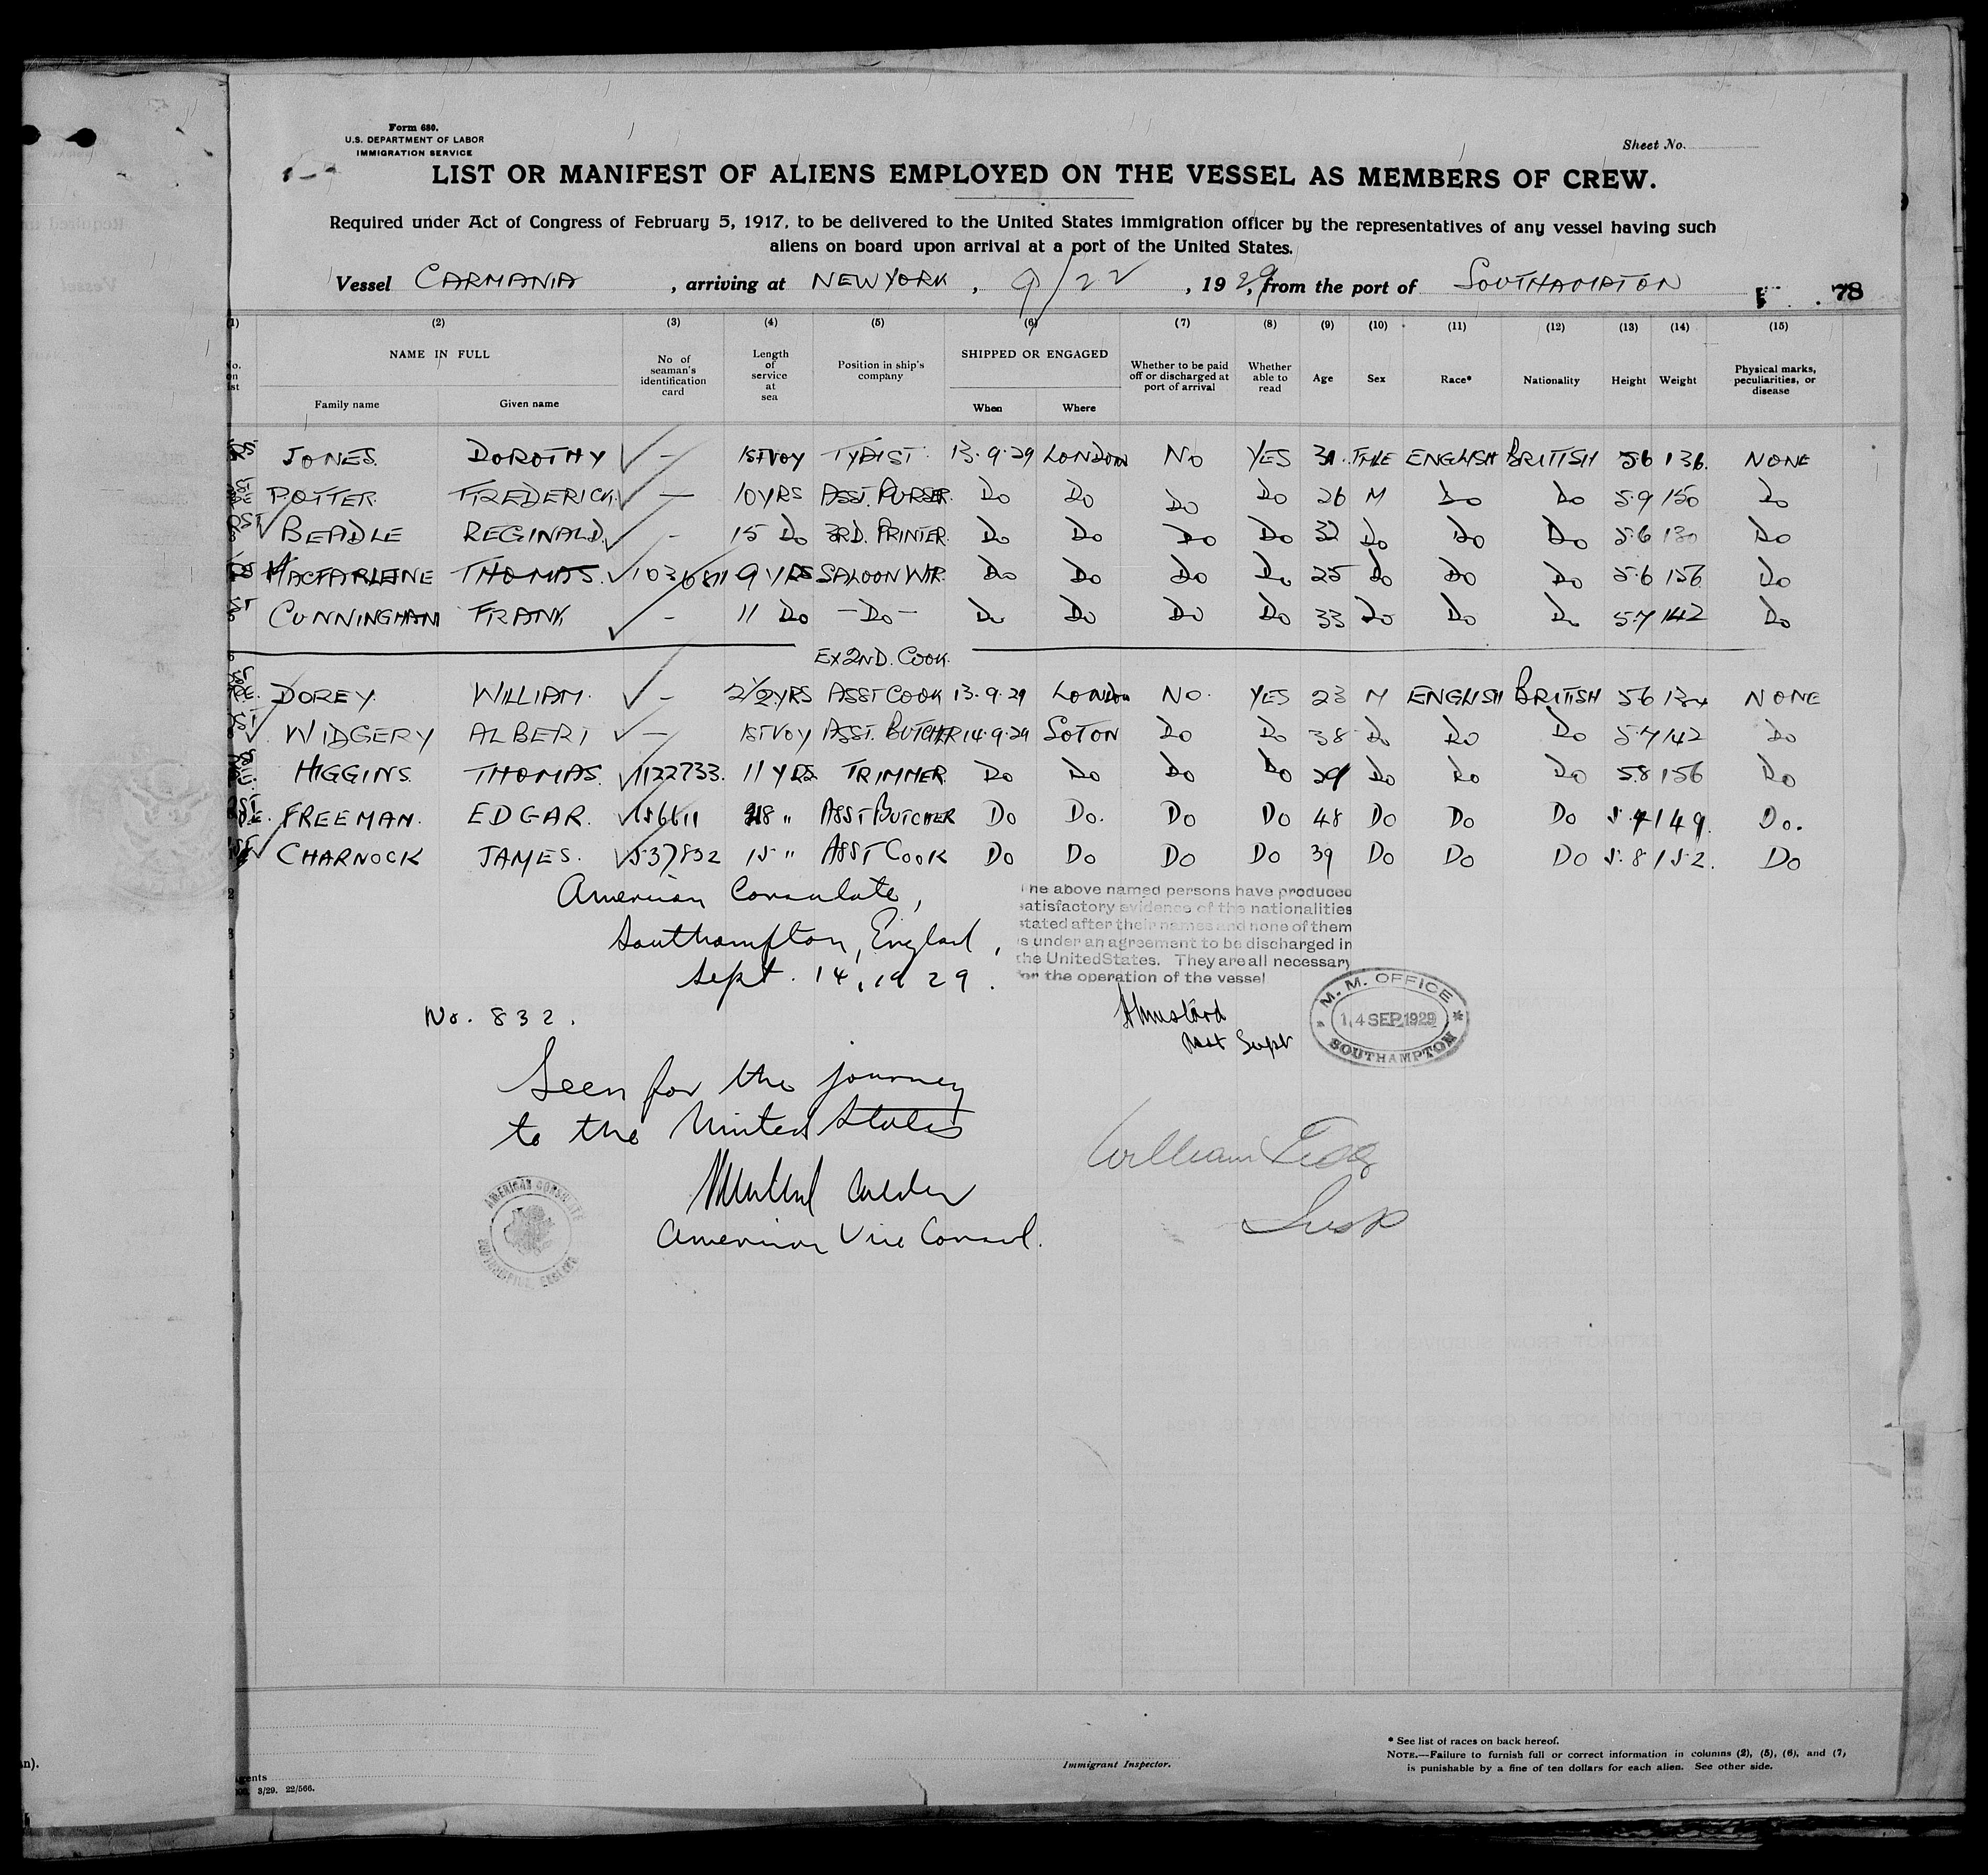 Form 680.
U.S. DEPARTMENT OF LABOR
IMMIGRATION SERVICE
Sheet No.
LIST OR MANIFEST OF ALIENS EMPLOYED ON THE VESSEL AS MEMBERS OF CREW.
Required under Act of Congress of February 5, 1917, to be delivered to the United States immigration officer by the representatives of any vessel having such
aliens on board upon arrival at a port of the United States.
Vessel CARMANIA, arriving at NEW YORK, 9/22, 1929, from the port of SOUTHAMPTON 78
(1) (2) (3) (4) (5) (6) (7) (8) (9) (10) (11) (12) (13) (14) (15)
NAME IN FULL Family name Given name No of seaman's identification card Length of service at sea Position in ship's company SHIPPED OR ENGAGED When Where Whether to be paid off or discharged at port of arrival Whether able to read Age Sex Race* Nationality Height Weight Physical marks, peculiarities, or disease
JONES. DOROTHY ✓ - 1ST VOY TYPIST. 13.9.29 LONDON NO YES 31 ENGLISH BRITISH 5.6 136. NONE
POTTER. FREDERICK. ✓ - 10 YRS ASST. PURSER. Do Do Do Do 26 M Do Do 5.9 150 Do
✓ BEADLE REGINALD. ✓ - 15 Do 3RD. PRINTER. Do Do Do Do 32 Do Do Do 5.6 130 Do
MACFARLENE THOMAS. ✓ 1036811 9 YRS SALOON WTR. Do Do Do Do 25 Do Do Do 5.6 156 Do
CUNNINGHAM FRANK ✓ - 11 Do -Do- Do Do Do Do 33 Do Do Do 5.7 142 Do
EX 2ND. COOK.
DOREY. WILLIAM. ✓ - 2½ YRS ASST COOK 13.9.29 LONDON NO. YES 23 M ENGLISH BRITISH 5.6 134 NONE
✓ WIDGERY ALBERT ✓ - 1ST VOY ASST. BUTCHER 14.9.29 SOTON Do Do 38 Do Do Do 5.7 142 Do
HIGGINS. THOMAS. ✓ 1132733. 11 YRS TRIMMER. Do Do Do Do 29 Do Do Do 5.8 156 Do
FREEMAN. EDGAR. ✓ 186611 18 " ASST BUTCHER Do Do. Do Do 48 Do Do Do 149. Do.
✓ CHARNOCK JAMES. ✓ 537832 15 " ASST COOK Do Do Do Do 39 Do Do Do 5.8 152. Do
American Consulate,
Southampton, England,
Sept. 14, 1929.
The above named persons have produced
satisfactory evidence of the nationalities
stated after their names and none of them
is under an agreement to be discharged in
the United States. They are all necessary
for the operation of the vessel
No. 832.
Asst Supt
M. M. OFFICE
14 SEP 1929
SOUTHAMPTON
Seen for the journey
to the United States
William
Insp
AMERICAN CONSULATE
SOUTHAMPTON, ENGLAND
American Vice Consul.
* See list of races on back hereof.
NOTE.—Failure to furnish full or correct information in columns (2), (5), (6), and (7)
is punishable by a fine of ten dollars for each alien. See other side.
Immigrant Inspector.
3/29. 22/566.